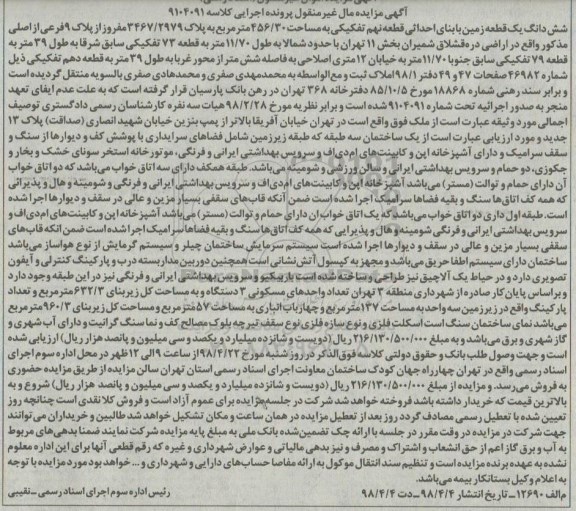 آگهی مزایده مال غیرمنقول پرونده اجرایی کلاسه ۹۱۰۴۰۹۱
شش دانگ یک قطعه زمین با بنای احداثی قطعه نهم تفکیکی به مساحت ۴۵۶/۳۰ مترمربع به پلاک ۳۴۶۷/۲۹۷۹ مفروز از پلاک ۹ فرعی از اصلی
مذکور واقع در اراضی دره قشلاق شمیران بخش ۱۱ تهران با حدود شمالا به طول ۱۱/۷۰ متر به قطعه ۷۳ تفکیکی سابق شرقا به طول ۳۹ متر به
قطعه ۷۹ تفکیکی سابق جنوبا ۱۱/۷۰ متر به خیابان ۱۲ متری اصلاحی به فاصله شش متر از محور غربا به طول ۳۹ متر به قطعه دهم تفکیکی ذیل
شماره ۴۶۹۸۲ صفحات ۴۷ و ۴۹ دفتر ۹۸/۱ املاک ثبت و مع الواسطه به محمدمهدی صفری و محمدهادی صفری بالسویه منتقل گردیده است
و برابر سند رهنی شماره ۱۸۸۶۸ مورخ ۸۵/۱۰/۵ دفترخانه ۳۶۸ تهران در رهن بانک پارسیان قرار گرفته است که به علت عدم ایفای تعهد
منجر به صدور اجرائیه تحت شماره ۹۱۰۴۰۹۱ شده است و برابر نظریه مورخ ۹۸/۲/۲۸ هیات سه نفره کارشناسان رسمی دادگستری توصیف
اجمالی مورد وثیقه عبارت است از ملک فوق واقع است در تهران خیابان آفریقا بالاتر از پمپ بنزین خیابان شهید انصاری (صداقت) پلاک ۱۳
جدید و مورد ارزیابی عبارت است از یک ساختمان سه طبقه که طبقه زیرزمین شامل فضاهای سرایداری با پوشش کف و دیوارها از سنگ و
سقف سرامیک و دارای آشپزخانه اپن و کابینت‌های ام‌دی‌اف و سرویس بهداشتی ایرانی و فرنگی، موتورخانه استخر سونای خشک و بخار و
جکوزی، دو حمام و سرویس بهداشتی ایرانی و سالن ورزشی و شومینه می‌باشد. طبقه همکف دارای سه اتاق خواب می‌باشد که دو اتاق خواب
آن دارای حمام و توالت (مستر) می‌باشد آشپزخانه اپن و کابینت‌های ام‌دی‌اف و سرویس بهداشتی ایرانی و فرنگی و شومینه و هال و پذیرائی
که همه کف اتاق‌ها سنگ و بقیه فضاها سرامیک اجرا شده است ضمن آنکه قاب‌های سقفی بسیار مزین و عالی در سقف و دیوارها اجرا شده
است. طبقه اول داری دو اتاق خواب می‌باشد که یک اتاق خواب آن دارای حمام و توالت (مستر) می‌باشد آشپزخانه اپن و کابینت‌های ام‌دی‌اف و
سرویس بهداشتی ایرانی و فرنگی شومینه و هال و پذیرایی که همه کف اتاق‌ها سنگ و بقیه فضاها سرامیک اجرا شده است ضمن آنکه قاب‌های
سقفی بسیار مزین و عالی در سقف و دیوارها اجرا شده است سیستم سرمایش ساختمان چیلر و سیستم گرمایش از نوع هواساز می‌باشد
ساختمان دارای سیستم اطفا حریق می‌باشد و مجهز به کپسول آتش‌نشانی است همچنین دوربین مداربسته درب و پارکینگ کنترلی و آیفون
تصویری دارد و در حیاط یک آلاچیق نیز طراحی و ساخته شده است باربیکیو و سرویس بهداشتی ایرانی و فرنگی نیز در این طبقه وجود دارد
و براساس پایان کار صادره از شهرداری منطقه ۳ تهران تعداد واحدهای مسکونی ۳ دستگاه و به مساحت کل زیربنای ۶۳۲/۳ مترمربع و تعداد
پارکینگ واقع در زیرزمین سه واحد به مساحت ۱۳۷ مترمربع و چهار باب انباری به مساحت ۵۷ مترمربع و مساحت کل زیربنای ۹۶۰/۳ مترمربع
می‌باشد نمای ساختمان سنگ است اسکلت فلزی و نوع سازه فلزی نوع سقف تیرچه بلوک مصالح کف و نما سنگ گرانیت و دارای آب شهری و
گاز شهری و برق می‌باشد و به مبلغ ۲۱۶/۱۳۰/۵۰۰/۰۰۰ ریال (دویست و شانزده میلیارد و یکصد و سی میلیون و پانصد هزار ریال) ارزیابی شده
است و جهت وصول طلب بانک و حقوق دولتی کلاسه فوق الذکر در روز شنبه مورخ ۹۸/۴/۲۲ از ساعت ۹ الی ۱۲ ظهر در محل اداره سوم اجرای
اسناد رسمی واقع در تهران چهارراه جهان کودک ساختمان معاونت اجرای اسناد رسمی استان تهران سالن مزایده از طریق مزایده حضوری
به فروش می‌رسد. و مزایده از مبلغ ۲۱۶/۱۳۰/۵۰۰/۰۰۰ ریال (دویست و شانزده میلیارد و یکصد و سی میلیون و پانصد هزار ریال) شروع و به
بالاترین قیمت که خریدار داشته باشد فروخته خواهد شد شرکت در جلسه مزایده برای عموم آزاد است و فروش کلا نقدی است چنانچه روز
تعیین شده با تعطیل رسمی مصادف گردد روز بعد از تعطیل مزایده در همان ساعت و مکان تشکیل خواهد شد طالبین و خریداران می‌توانند
جهت شرکت در مزایده در وقت مقرر در جلسه با ارائه چک تضمین شده بانک ملی به مبلغ پایه مزایده شرکت نمایند ضمنا بدهی‌های مربوط
به آب و برق گاز اعم از حق انشعاب و اشتراک و مصرف و نیز بدهی مالیاتی و عوارض شهرداری و غیره که رقم قطعی آنها برای این اداره معلوم
نشده به عهده برنده مزایده است و تنظیم سند انتقال موکول به ارائه مفاصا حساب‌های دارایی و شهرداری و ... خواهد بود مورد مزایده با توجه
به اعلام وکیل بستانکار بیمه می‌باشد.
م الف ۱۲۶۹۰ ــ تاریخ انتشار ۹۸/۴/۴ ــ دت ۹۸/۴/۴
رئیس اداره سوم اجرای اسناد رسمی ــ نقیبی